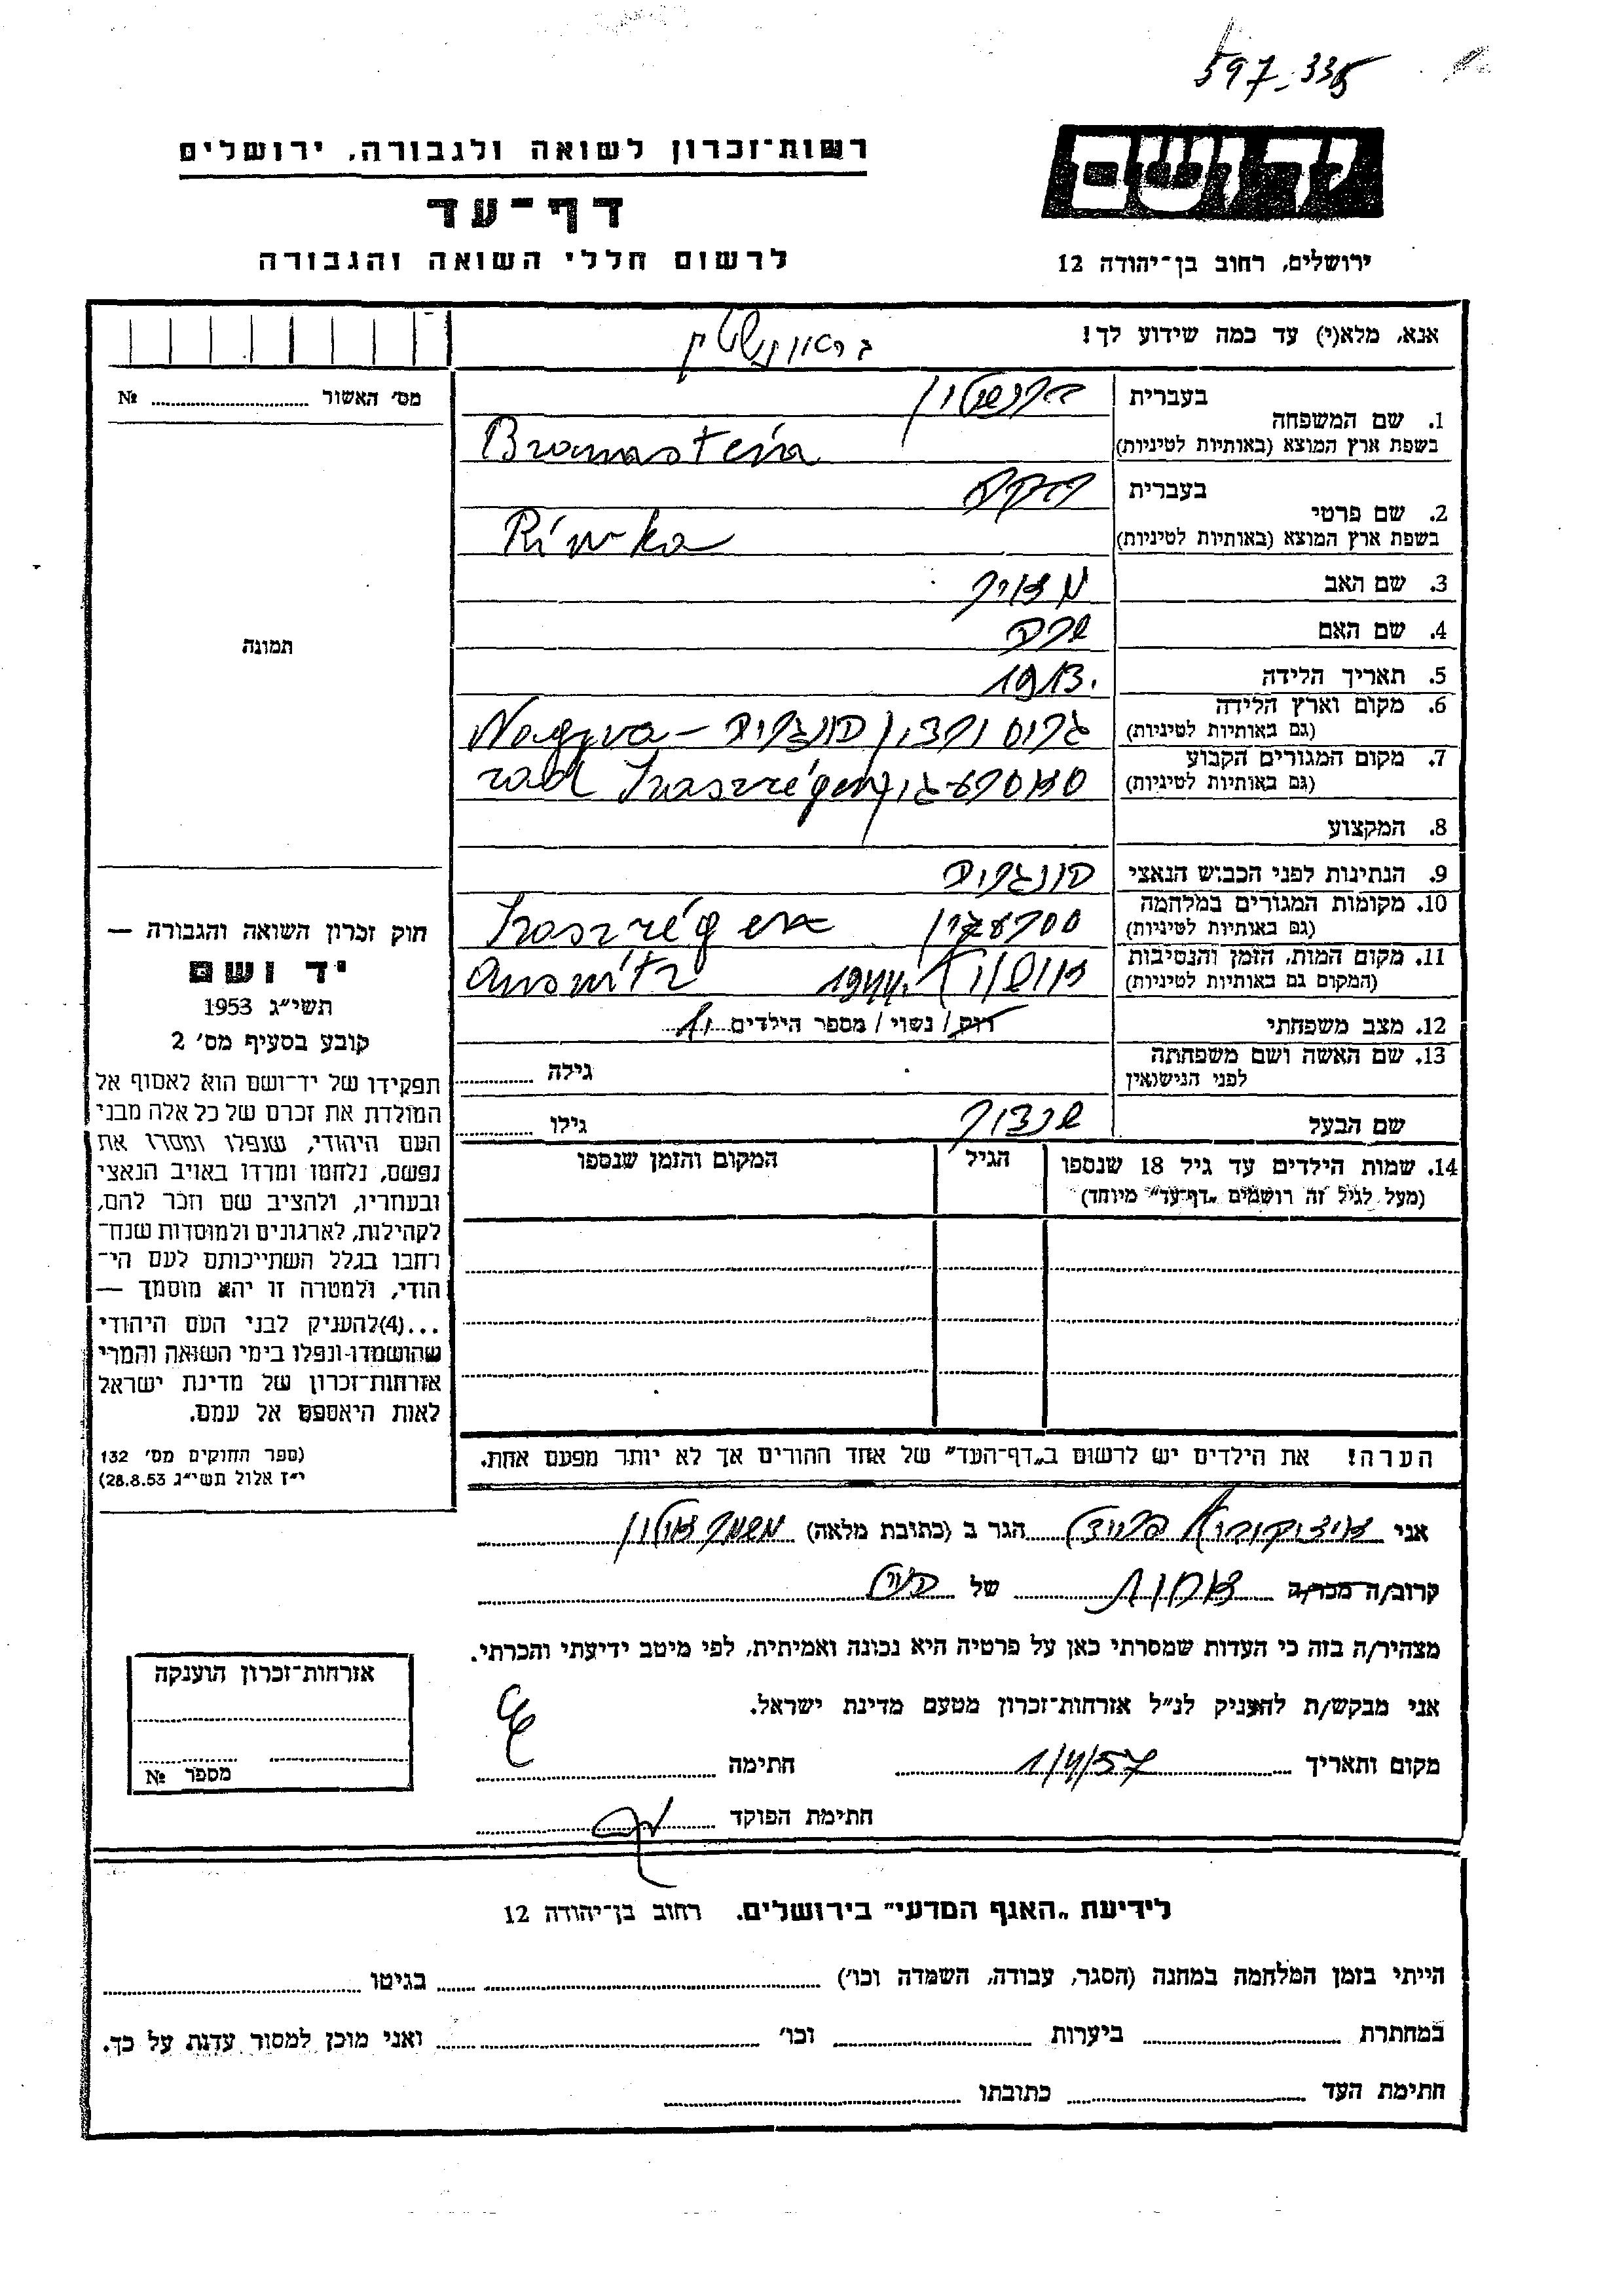 597-335
רשות־זכרון לשואה ולגבורה, ירושלים
דף־עד
לרשום חללי השואה והגבורה
ידושם
ירושלים, רחוב בן־יהודה 12
אנא, מלא(י) עד כמה שידוע לך!
בראונשטין
מס' האשור ........ №
תמונה
1. שם המשפחה בעברית
בשפת ארץ המוצא (באותיות לטיניות) Braunstein
2. שם פרטי בעברית רבקה
בשפת ארץ המוצא (באותיות לטיניות) Riwka
3. שם האב מאיר
4. שם האם שרה
5. תאריך הלידה 1913.
6. מקום וארץ הלידה (גם באותיות לטיניות) גרוסורדין הונגריה – Nagyva-
7. מקום המגורים הקבוע (גם באותיות לטיניות) rad Szaszrégen
8. המקצוע
9. הנתינות לפני הכבוש הנאצי הונגריה
10. מקומות המגורים במלחמה (גם באותיות לטיניות) Szaszrégen
11. מקום המות, הזמן והנסיבות (המקום גם באותיות לטיניות) אושויץ 1944. Auswitz
12. מצב משפחתי רוק / נשוי / מספר הילדים 1
13. שם האשה ושם משפחתה לפני הנישואין גילה
שם הבעל גילו
14. שמות הילדים עד גיל 18 שנספו
(מעל לגיל זה רושמים „דף־עד" מיוחד)
הגיל
המקום והזמן שנספו
הערה! את הילדים יש לרשום ב„דף־העד" של אחד ההורים אך לא יותר מפעם אחת.
חוק זכרון השואה והגבורה —
יד ושם
תשי״ג 1953
קובע בסעיף מס' 2
תפקידו של יד־ושם הוא לאסוף אל
המולדת את זכרם של כל אלה מבני
העם היהודי, שנפלו ומסרו את
נפשם, נלחמו ומרדו באויב הנאצי
ובעוזריו, ולהציב שם וזכר להם,
לקהילות, לארגונים ולמוסדות שנח־
רבו בגלל השתייכותם לעם הי־
הודי, ולמטרה זו יהא מוסמך —
...(4) להעניק לבני העם היהודי
שהושמדו ונפלו בימי השואה והמרי
אזרחות־זכרון של מדינת ישראל
לאות היאספם אל עמם.
(ספר החוקים מס' 132
י״ז אלול תשי״ג 28.8.53)
אני הגר ב (כתובת מלאה)
קרוב/ה מכר/ה אחות של
מצהיר/ה בזה כי העדות שמסרתי כאן על פרטיה היא נכונה ואמיתית, לפי מיטב ידיעתי והכרתי.
אני מבקש/ת להעניק לנ״ל אזרחות־זכרון מטעם מדינת ישראל.
מקום ותאריך 1/4/57 חתימה
חתימת הפוקד
אזרחות־זכרון הוענקה
מספר №
לידיעת „האגף המדעי" בירושלים, רחוב בן־יהודה 12
הייתי בזמן המלחמה במחנה (הסגר, עבודה, השמדה וכו') ........ בגיטו ........
במחתרת ........ ביערות ........ וכו' ........ ואני מוכן למסור עדות על כך.
חתימת העד ........ כתובתו ........